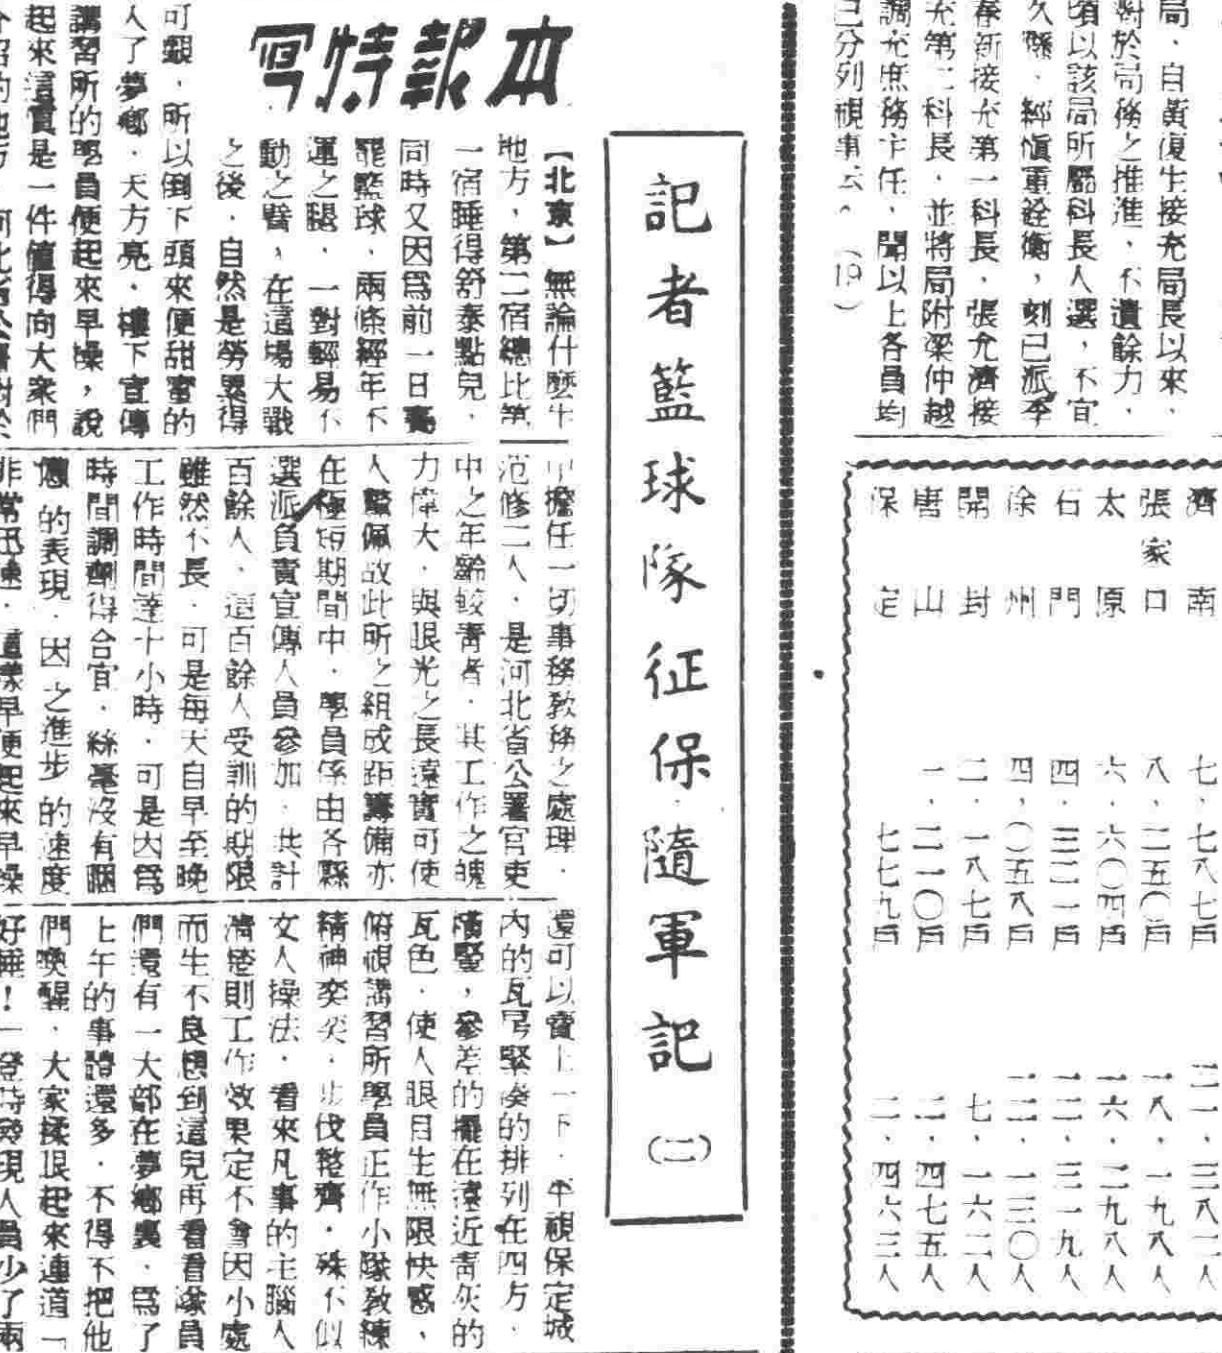 局，自黃復生接充局長以來，
對於局務之推進，不遺餘力，
頃以該局所屬科長人選，不宜
久懸，經愼重銓衡，刻已派季
春新接充第一科長，張允濟接
充第二科長，並將局附梁仲越
調充庶務主任，聞以上各員均
已分列視事云。（19）
濟南 七，七八七戶 二一，三八二人
張家口 八，二五〇戶 一八，一九八人
太原 六，六〇四戶 一六，二九八人
石門 四，三二一戶 一二，三一九人
徐州 四，〇五八戶 一二，一三〇人
開封 二，一八七戶 七，一六二人
唐山 一，二一〇戶 二，四七五人
保定 七七九戶 二，四六三人
記者籃球隊征保隨軍記（二）
本報特寫
【北京】無論什麼生
地方，第二宿總比第
一宿睡得舒泰點兒，
同時又因爲前一日賽
罷籃球，兩條經年不
運之腿，一對輕易不
動之臂，在這場大戰
之後，自然是勞累得
可觀，所以倒下頭來便甜蜜的
入了夢鄉，天方亮，樓下宣傳
講習所的學員便起來早操，說
起來這實是一件值得向大衆們
擔任一切事務敎務之處理，
范修二人，是河北省公署官吏
中之年齡較靑者，其工作之魄
力偉大，與眼光之長遠實可使
人驚佩故此所之組成距籌備亦
在極短期間中，學員係由各縣
選派負責宣傳人員參加，共計
百餘人，這百餘人受訓的期限
雖然不長，可是每天自早至晚
工作時間達十小時，可是因爲
時間調劑得合宜，絲毫沒有睏
憊的表現，因之進步的速度
非常迅速，這樣早便起來早操
還可以賣上一下，平視保定城
內的瓦房緊凑的排列在四方，
橫豎，參差的擺在遠近靑灰的
瓦色，使人眼目生無限快感，
俯視講習所學員正作小隊敎練
精神奕奕，步伐整齊，殊不似
文人操法，看來凡事的主腦人
淸楚則工作效果定不會因小處
而生不良想到這兒再看看隊員
們還有一大部在夢鄉裏，爲了
上午的事體還多，不得不把他
們喚醒，大家揉眼起來連道「
好睡！一登時發現人員少了兩